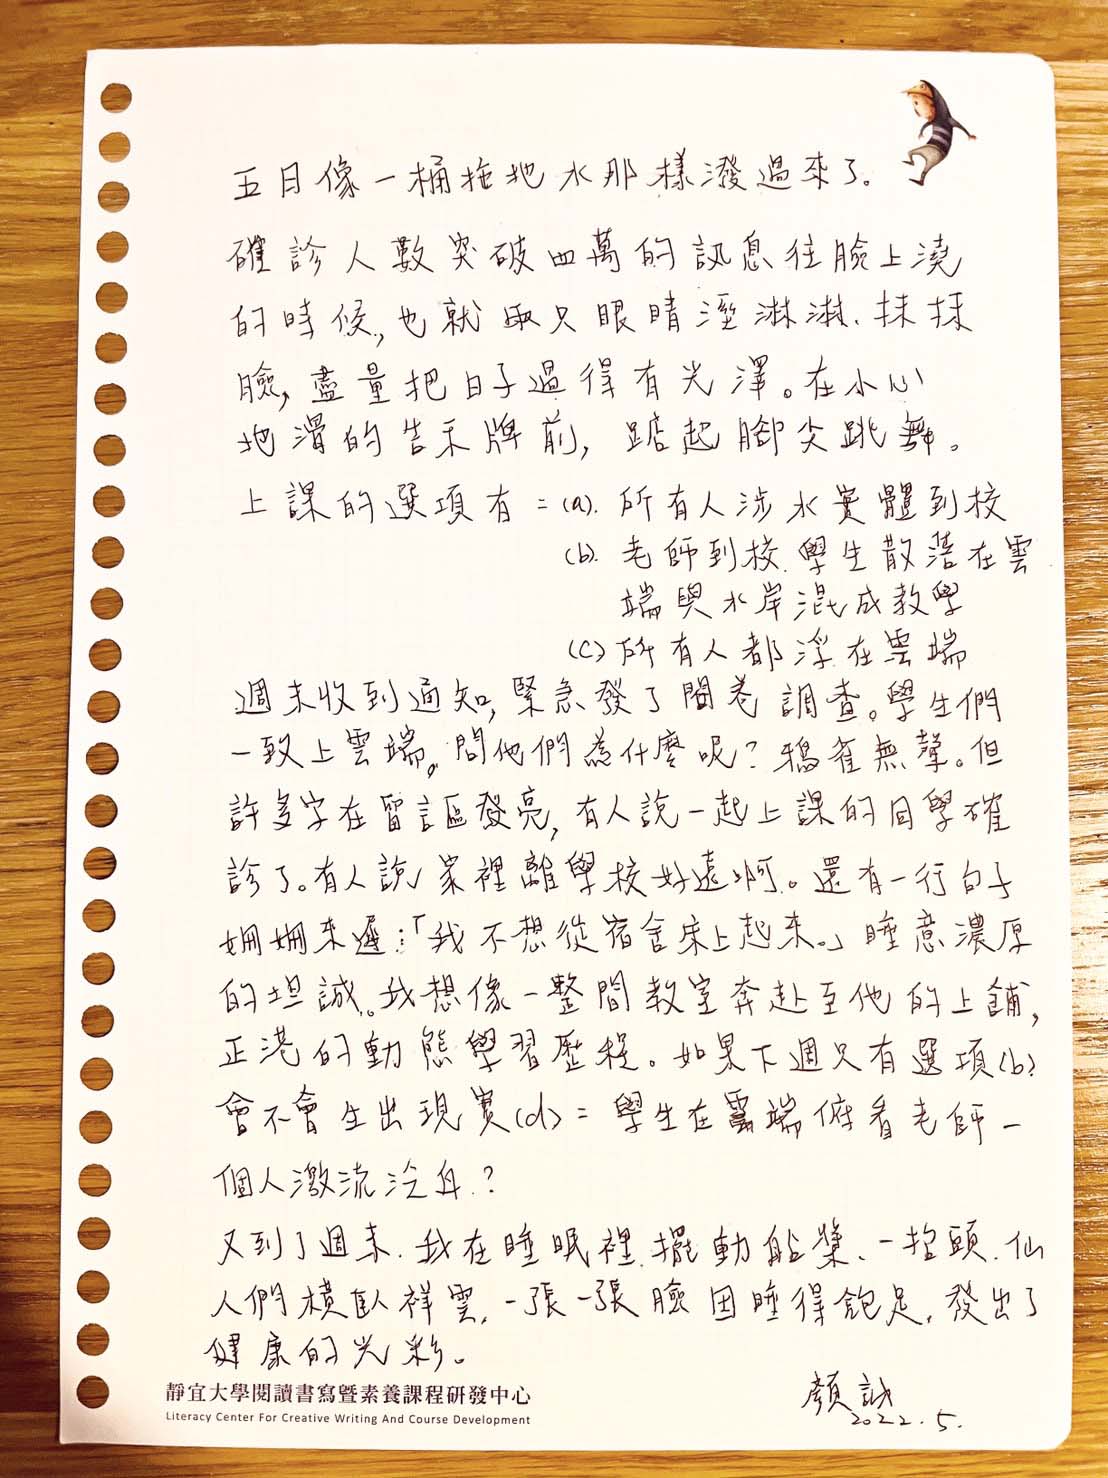 五月像一桶拖地水那樣潑過來了。
確診人數突破四萬的訊息往臉上澆
的時候,也就兩只眼睛溼淋淋、抹抹
臉,盡量把日子過得有光澤。在小心
地滑的告示牌前,踮起腳尖跳舞。
上課的選項有：(a). 所有人涉水實體到校
(b). 老師到校.學生散落在雲
端與水岸混成教學
(c) 所有人都浮在雲端
週末收到通知,緊急發了問卷調查。學生們
一致上雲端。問他們為什麼呢？鴉雀無聲。但
許多字在留言區發亮,有人說一起上課的同學確
診了。有人說家裡離學校好遠啊。還有一行句子
姍姍來遲：「我不想從宿舍床上起來。」睡意濃厚
的坦誠。我想像一整間教室奔赴至他的上鋪,
正港的動態學習歷程。如果下週只有選項(b)?
會不會生出現實(d)：學生在雲端俯看老師一
個人激流泛舟？
又到了週末.我在睡眠裡擺動船槳、一抬頭.仙
人們橫臥祥雲,一張一張臉因睡得飽足,發出了
健康的光彩。
靜宜大學閱讀書寫暨素養課程研發中心
Literacy Center For Creative Writing And Course Development
顏訥
2022.5.